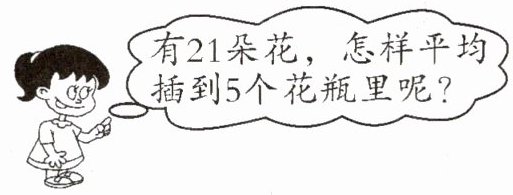 有21朵花，怎样平均
插到5个花瓶里呢？